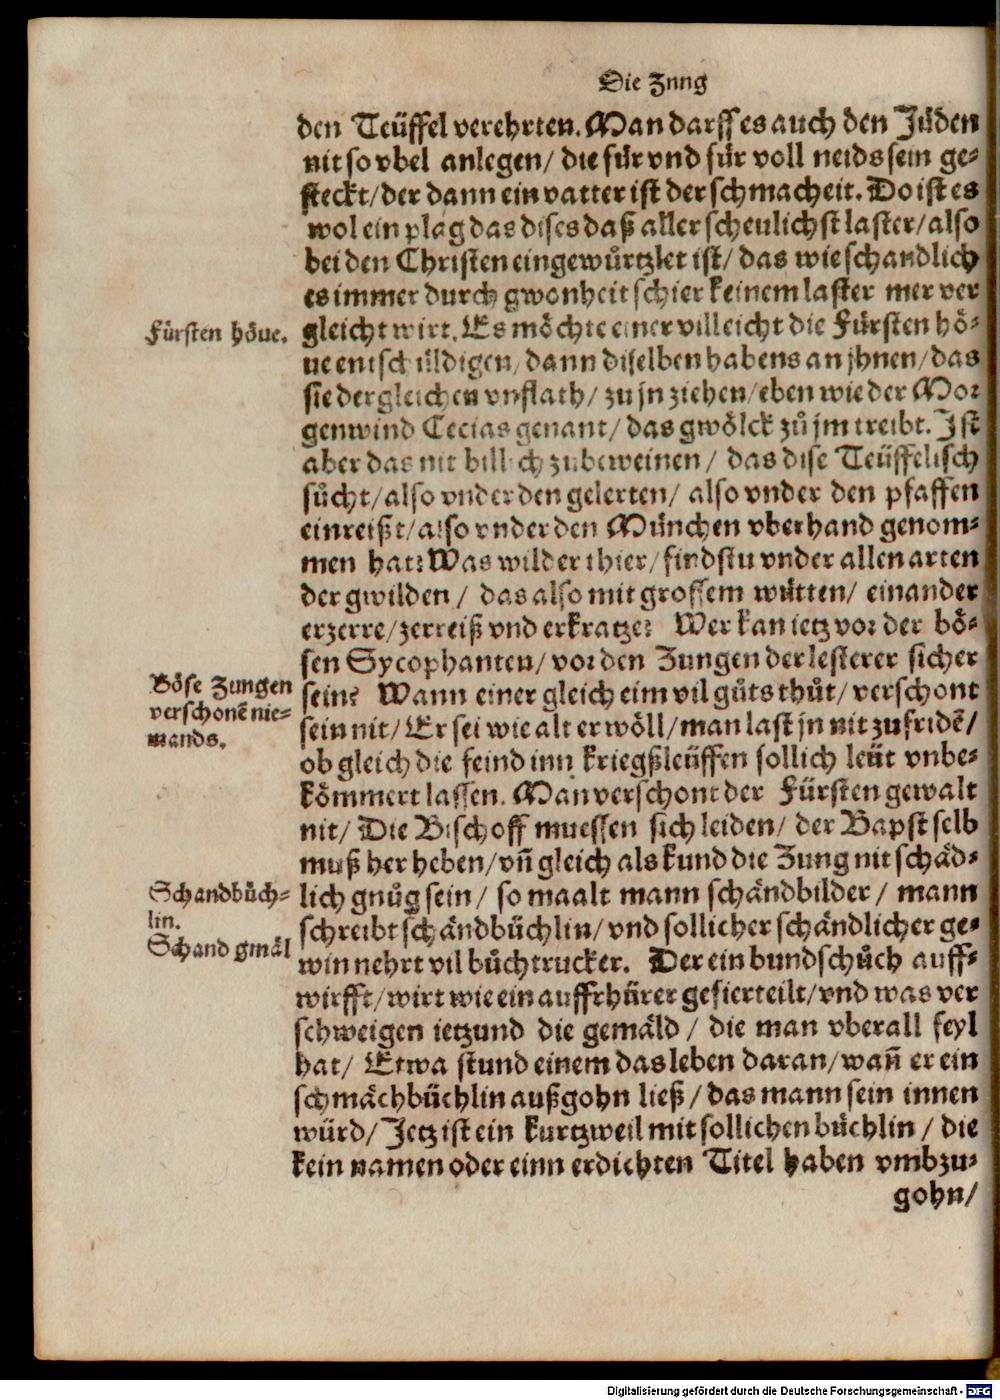 Die Zung
den Teüffel verehrten. Man darff es auch den Jüden
nit so vbel anlegen/ die für vnd für voll neids sein ge-
steckt/ der dann ein vatter ist der schmacheit. Do ist es
wol ein plag das dises daß aller scheulichst laster/ also
bei den Christen eingewůrtzlet ist/ das wie schandlich
es immer durch gwonheit schier keinem laster mer ver
Fürsten höue.
gleicht wirt. Es möchte einer villeicht die Fürsten hö-
ue entschüldigen/ dann diselben habens an jhnen/ das
sie dergleichen vnflath/ zu jn ziehen/ eben wie der Mor
genwind Cecias genant/ das gwölck zů jm treibt. Ist
aber das nit billich zubeweinen/ das dise Teüffelisch
sůcht/ also vnder den gelerten/ also vnder den pfaffen
einreißt/ also vnder den München vberhand genom-
men hat? Was wilder thier/ findstu vnder allen arten
der gwilden/ das also mit grossem wütten/ einander
erzerre/ zerreiß vnd erkratze? Wer kan ietz vor der bö-
sen Sycophanten/ vor den Zungen der lesterer sicher
Böse Zungen
verschonē nie-
mands.
sein? Wann einer gleich eim vil gůts thůt/ verschont
sein nit/ Er sei wie alt er wöll/ man last jn nit zufridē/
ob gleich die feind inn kriegßleüffen sollich leüt vnbe-
kömmert lassen. Man verschont der Fürsten gewalt
nit/ Die Bischoff muessen sich leiden/ der Bapst selb
muß her heben/ vñ gleich als kund die Zung nit schäd-
Schandbüch-
lin.
Schand gmäl
lich gnůg sein/ so maalt mann schändbilder/ mann
schreibt schändbüchlin/ vnd sollicher schändlicher ge-
win nehrt vil bůchtrucker. Der ein bundschůch auff-
wirfft/ wirt wie ein auffrhürer gefierteilt/ vnd was ver
schweigen ietzund die gemäld/ die man vberall feyl
hat/ Etwa stund einem das leben daran/ wañ er ein
schmächbüchlin außgohn ließ/ das mann sein innen
würd/ Jetz ist ein kurtzweil mit sollichen büchlin/ die
kein namen oder einn erdichten Titel haben vmbzu-
gohn/
Digitalisierung gefördert durch die Deutsche Forschungsgemeinschaft - DFG